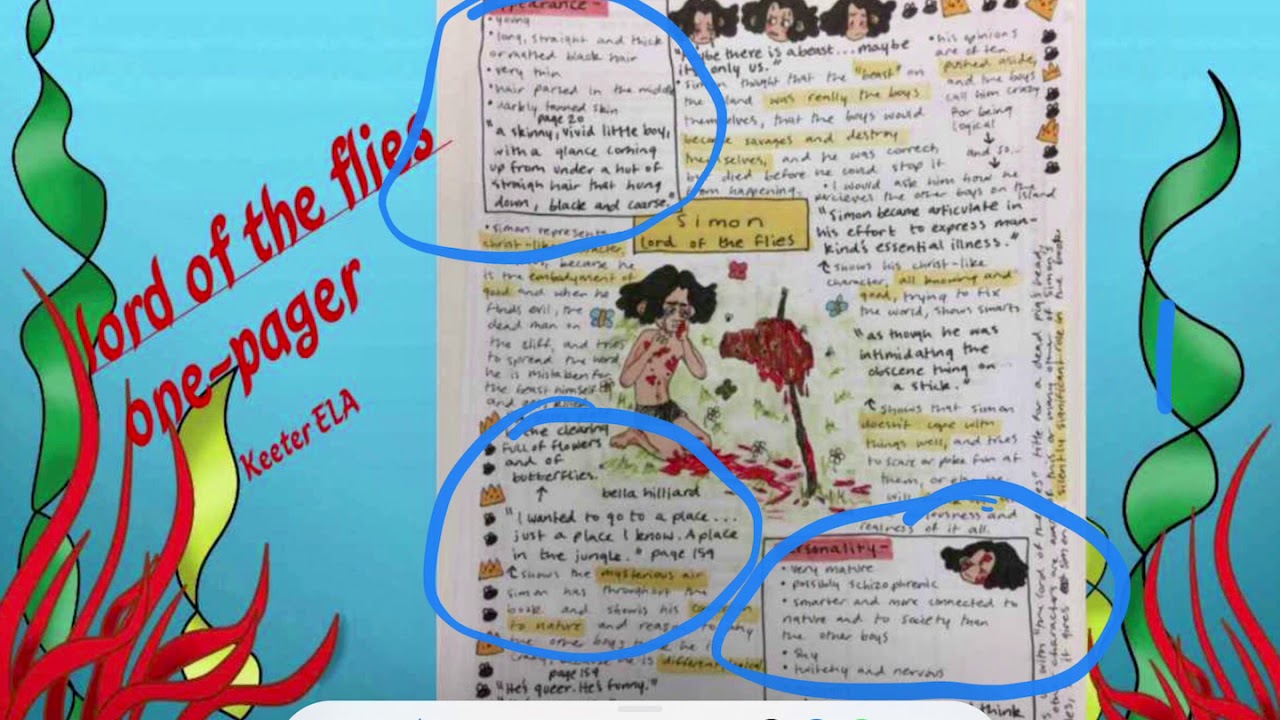 lord of the flies
one-pager
Keeter ELA
appearance-
• young
• long, straight and thick
or matted black hair
• very thin
• hair parsed in the middle
• darkly tanned skin
page 20
"a skinny, vivid little boy,
with a glance coming
up from under a hut of
straigh hair that hung
down, black and coarse."
be there is a beast...maybe
it only us."
• Simon thought that the "beast" on
the land was really the boys
themselves, that the boys would
become savages and destroy
themselves, and he was correct
died before he could stop it
from happening.
• his opinions
are often
pushed aside,
and the boys
call him crazy
for being
logical
and so...
• I would ask him how he
percieves the other boys on the island
Simon
lord of the flies
"Simon became articulate in
his effort to express man-
kind's essential illness."
↑ shows his christ-like
character, all knowing and
good, trying to fix
the world, shows smarts
"as though he was
intimidating the
obscene thing on
a stick."
↑ shows that simon
doesn't cope with
things well, and tries
to scare or poke fun at
them, or else he
will
ousness and
realness of it all.
• Simon represents
christ-like character,
because he
is the embodyment of
good and when he
finds evil, the
dead man on
the cliff, and tries
to spread the word
he is mistaken for
the beast himself
and
the clearing
full of flowers
and of
butterflies.
↑
bella hilliard
"I wanted to go to a place...
just a place I know. A place
in the jungle." page 159
↑ shows the mysterious air
simon has throughout the
book and shows his
to nature and reason to why
the other boys
crazy because he is different
page 159
"He's queer. He's funny."
personality-
• very mature
• possibly schizophrenic
• smarter and more connected to
nature and to society than
the other boys
• shy
• twitchy and nervous
think
with "the lord of the flies" title for a dead pig's head,
characters are
silently significant role in the book